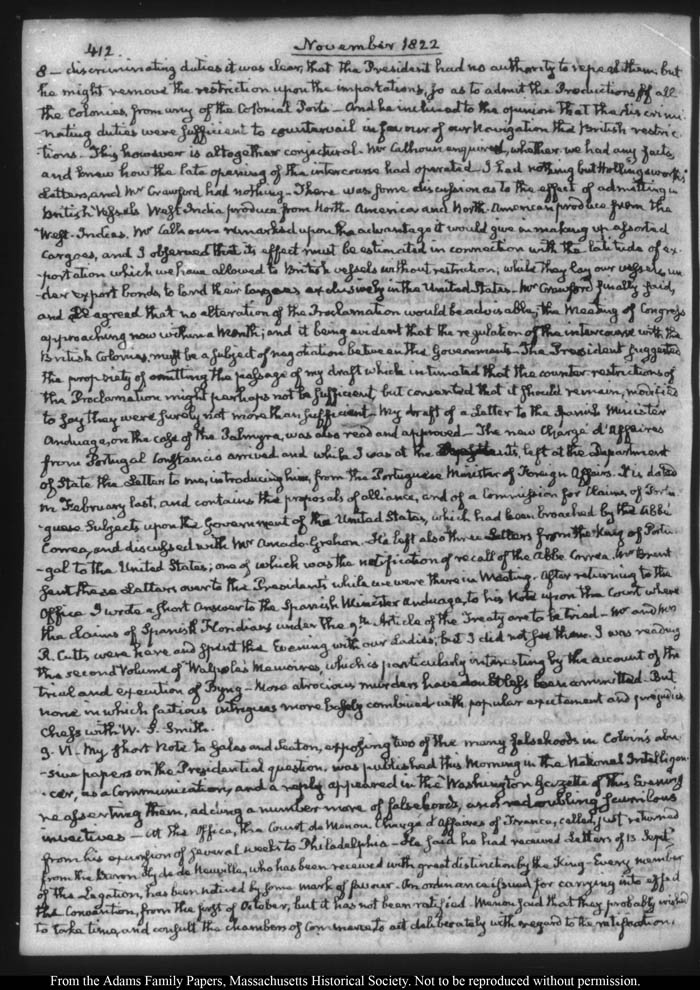 412.
November 1822
8 — discriminating duties it was clear, that the President had no authority to repeal them, but
he might remove the restriction upon the importations, so as to admit the Productions of all
the Colonies, from any of the Colonial Ports — And he inclined to the opinion that the discrimi-
-nating duties were sufficient to countervail in favour of our Navigation the British restric-
-tions. This however is altogether conjectural. Mr Calhoun enquired, whether we had any facts,
and knew how the late opening of the intercourse had operated. I had nothing but Hollingsworth's
Letters, and Mr Crawford had nothing — There was some discussion as to the effect of admitting in
British Vessels West-India produce from North-America and North-American produce from the
West-Indies. Mr Calhoun remarked upon the advantage it would give in making up assorted
Cargoes, and I observed that its effect must be estimated in connection with the latitude of ex-
-portation which we have allowed to British vessels without restriction; while they lay our vessels un-
-der export bonds, to land their Cargoes exclusively in the United States — Mr Crawford finally said,
and agreed that no alteration of the Proclamation would be advisable, the Meeting of Congress
approaching now within a Month; and it being evident that the regulation of the intercourse with the
British Colonies, must be a subject of negotiation between the Governments — The President suggested
the propriety of omitting the passage of my draft which intimated that the counter restrictions of
the Proclamation might perhaps not be sufficient, but consented that it should remain, modified
to say they were surely not more than sufficient — My draft of a Letter to the Spanish Minister
Anduaga, on the case of the Palmyra, was also read and approved — The new Chargé d'Affaires
from Portugal Constancio arrived and while I was at the President's, left at the Department
of State the Letter to me, introducing him, from the Portuguese Minister of Foreign Affairs. It is dated
in February last, and contains the proposals of alliance, and of a Commission for Claims, of Portu-
guese Subjects upon the Government of the United States, which had been broached by the Abbé
Correa, and discussed with Mr Amado-Grehon. He left also three Letters from the King of Portu-
-gal to the United States; one of which was the notification of recall of the Abbé Correa. Mr Brent
sent these Letters over to the President's while we were there in Meeting. After returning to the
Office I wrote a short Answer to the Spanish Minister Anduaga, to his Note upon the Court where
the claims of Spanish Floridians under the 9th Article of the Treaty are to be tried — Mr and Mrs
R. Cutts were here and spent the Evening with our Ladies; but I did not see them. I was reading
the second Volume of Walpole's Memoires, which is particularly interesting by the account of the
trial and execution of Byng — More atrocious murders have doubtless been committed. But
none in which factious intrigues more basely combined with popular excitement and prejudice
Chess with W. S. Smith.
9. VI. My short Note to Gales and Seaton, exposing two of the many falsehoods in Colvin's abu-
-sive papers on the Presidential question, was published this Morning in the National Intelligen-
-cer, as a Communication, and a reply appeared in the Washington Gazette of this Evening
reasserting them, adding a number more of falsehoods, and redoubling scurrilous
invectives — At the Office, the Count de Menou, Chargé d'Affaires of France, called, just returned
from his excursion of several weeks to Philadelphia — He said he had received Letters of 13 Septr
from the Baron Hyde de Neuville, who has been received with great distinction by the King — Every member
of the Legation, has been noticed by some mark of favour. An ordinance issued for carrying into effect
the Convention, from the first of October, but it has not been ratified. Menou said that they probably wished
to take time, and consult the chambers of Commerce to act deliberately with regard to the ratification.
From the Adams Family Papers, Massachusetts Historical Society. Not to be reproduced without permission.